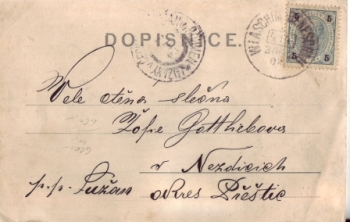 DOPISNICE.
5 5
Vele ctěna slečna
Žofie Gotthilbova
v Nezdicích
p.p. Lužan okres Přeštic